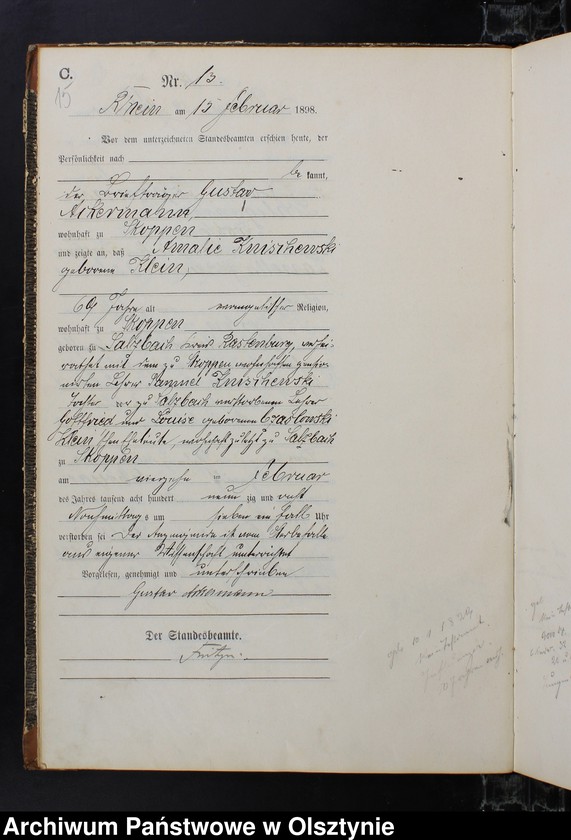 C.
Nr. 13.
15
Rhein am 15 Februar 1898.
Vor dem unterzeichneten Standesbeamten erschien heute, der
Persönlichkeit nach
bekannt,
der Briefträger Gustav
Ackermann,
wohnhaft zu Skoppen
und zeigte an, daß Amalie Knischewski
geborene Klein,
69 Jahre alt evangelischer Religion,
wohnhaft zu Skoppen
geboren zu Salzbach Kreis Rastenburg, verhei-
rathet mit dem zu Skoppen wohnhaften pensio-
nirten Lehrer Samuel Knischewski
Tochter der zu Salzbach verstorbenen Lehrer
Gottfried und Louise geborene
Klein'schen Eheleute, wohnhaft zuletzt zu Salzbach
zu Skoppen
am vierzehn Februar
des Jahres tausend acht hundert neun zig und acht
Nachmittags um sieben ein halb Uhr
verstorben sei Der Anzeigende ist vom Sterbefalle
aus eigener Wissenschaft unterrichtet
Vorgelesen, genehmigt und unterschrieben
Gustav Ackermann
Der Standesbeamte.
Archiwum Państwowe w Olsztynie